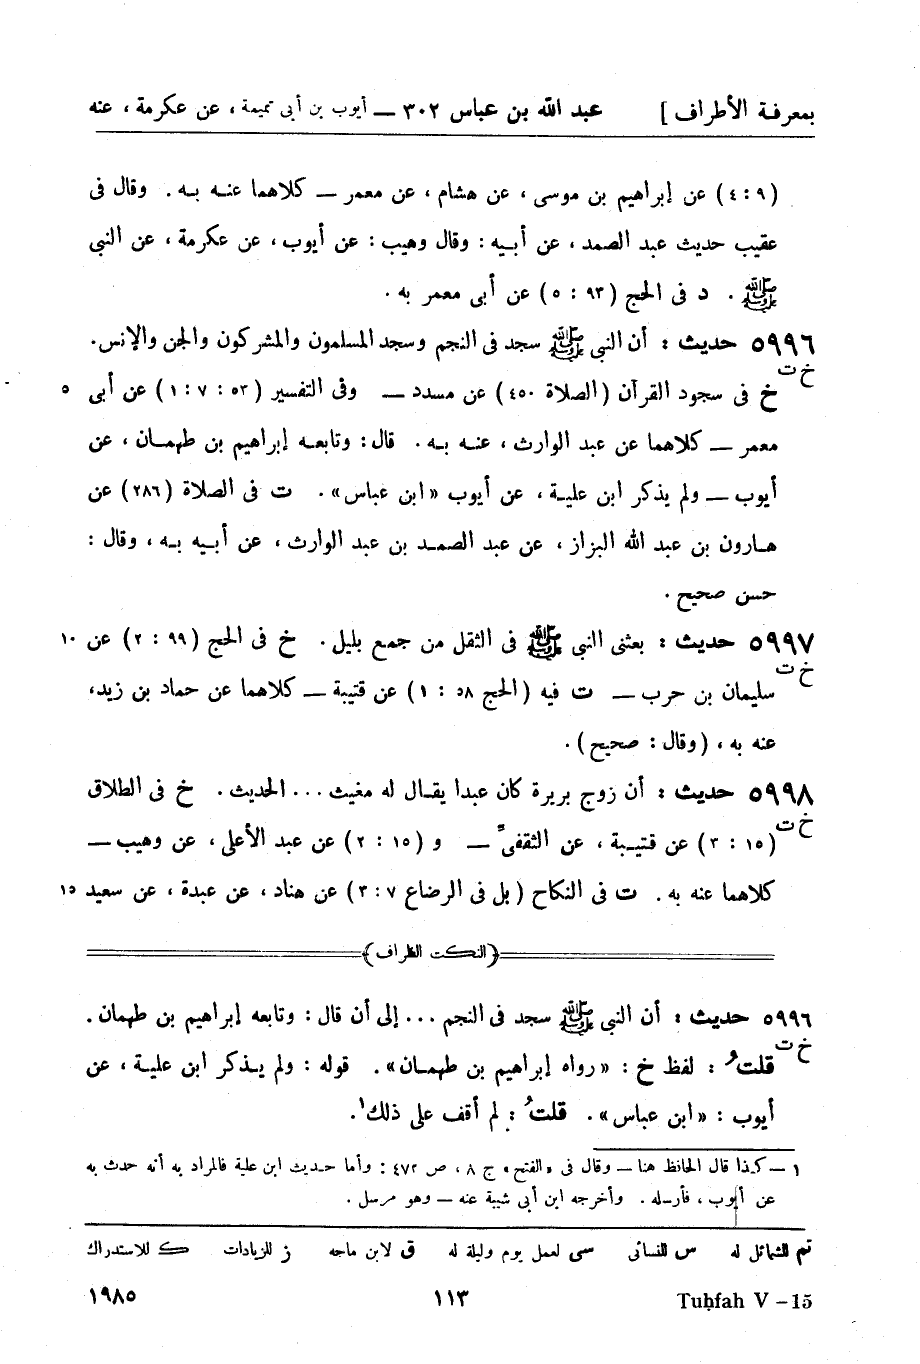 بمعرفة الأطراف ] عبد الله بن عباس ٣٠٢ — أيوب بن أبى تميمة ، عن عكرمة ، عنه
(٩ : ٤) عن إبراهيم بن موسى ، عن هشام ، عن معمر — كلاهما عنه به . وقال فى
عقيب حديث عبد الصمد ، عن أبيه : وقال وهيب : عن أيوب ، عن عكرمة ، عن النبى
ﷺ . د فى الحج (٩٣ : ٥) عن أبى معمر به .
٥٩٩٦ حديث : أن النبى ﷺ سجد فى النجم وسجد المسلمون والمشركون والجن والإنس .
خ ت
خ فى سجود القرآن (الصلاة ٤٥٠) عن مسدد — وفى التفسير (٥٣ : ٧ : ١) عن أبى ٥
معمر — كلاهما عن عبد الوارث ، عنه به . قال : وتابعه إبراهيم بن طهمان ، عن
أيوب — ولم يذكر ابن علية ، عن أيوب «ابن عباس» . ت فى الصلاة (٢٨٦) عن
هارون بن عبد الله البزاز ، عن عبد الصمد بن عبد الوارث ، عن أبيه به ، وقال :
حسن صحيح .
٥٩٩٧ حديث : بعثنى النبى ﷺ فى الثقل من جمع بليل . خ فى الحج (٩٩ : ٢) عن ١٠
خ ت
سليمان بن حرب — ت فيه (الحج ٥٨ : ١) عن قتيبة — كلاهما عن حماد بن زيد،
عنه به ، (وقال : صحيح) .
٥٩٩٨ حديث : أن زوج بريرة كان عبدا يقال له مغيث ... الحديث . خ فى الطلاق
خ ت
(١٥ : ٣) عن قتيبة ، عن الثقفىّ — و (١٥ : ٢) عن عبد الأعلى ، عن وهيب —
كلاهما عنه به . ت فى النكاح (بل فى الرضاع ٧ : ٣) عن هناد ، عن عبدة ، عن سعيد ١٥
﴿النكت الظراف﴾
٥٩٩٦ حديث : أن النبى ﷺ سجد فى النجم ... إلى أن قال : وتابعه إبراهيم بن طهمان .
خ ت
قلتُ : لفظ خ : «رواه إبراهيم بن طهمان» . قوله : ولم يذكر ابن علية ، عن
أيوب : «ابن عباس» . قلتُ : لم أقف على ذلك¹.
١ — كذا قال الحافظ هنا — وقال فى «الفتح» ج ٨ ، ص ٤٧٢ : وأما حديث ابن علية فالمراد به أنه حدث به
عن أيوب ، فأرسله . وأخرجه ابن أبى شيبة عنه — وهو مرسل .
تم للشمائل له س للنسائى سى لعمل يوم وليلة له ق لابن ماجه ز للزيادات ك للاستدراك
Tuḥfah V – 15 ١١٣ ١٩٨٥